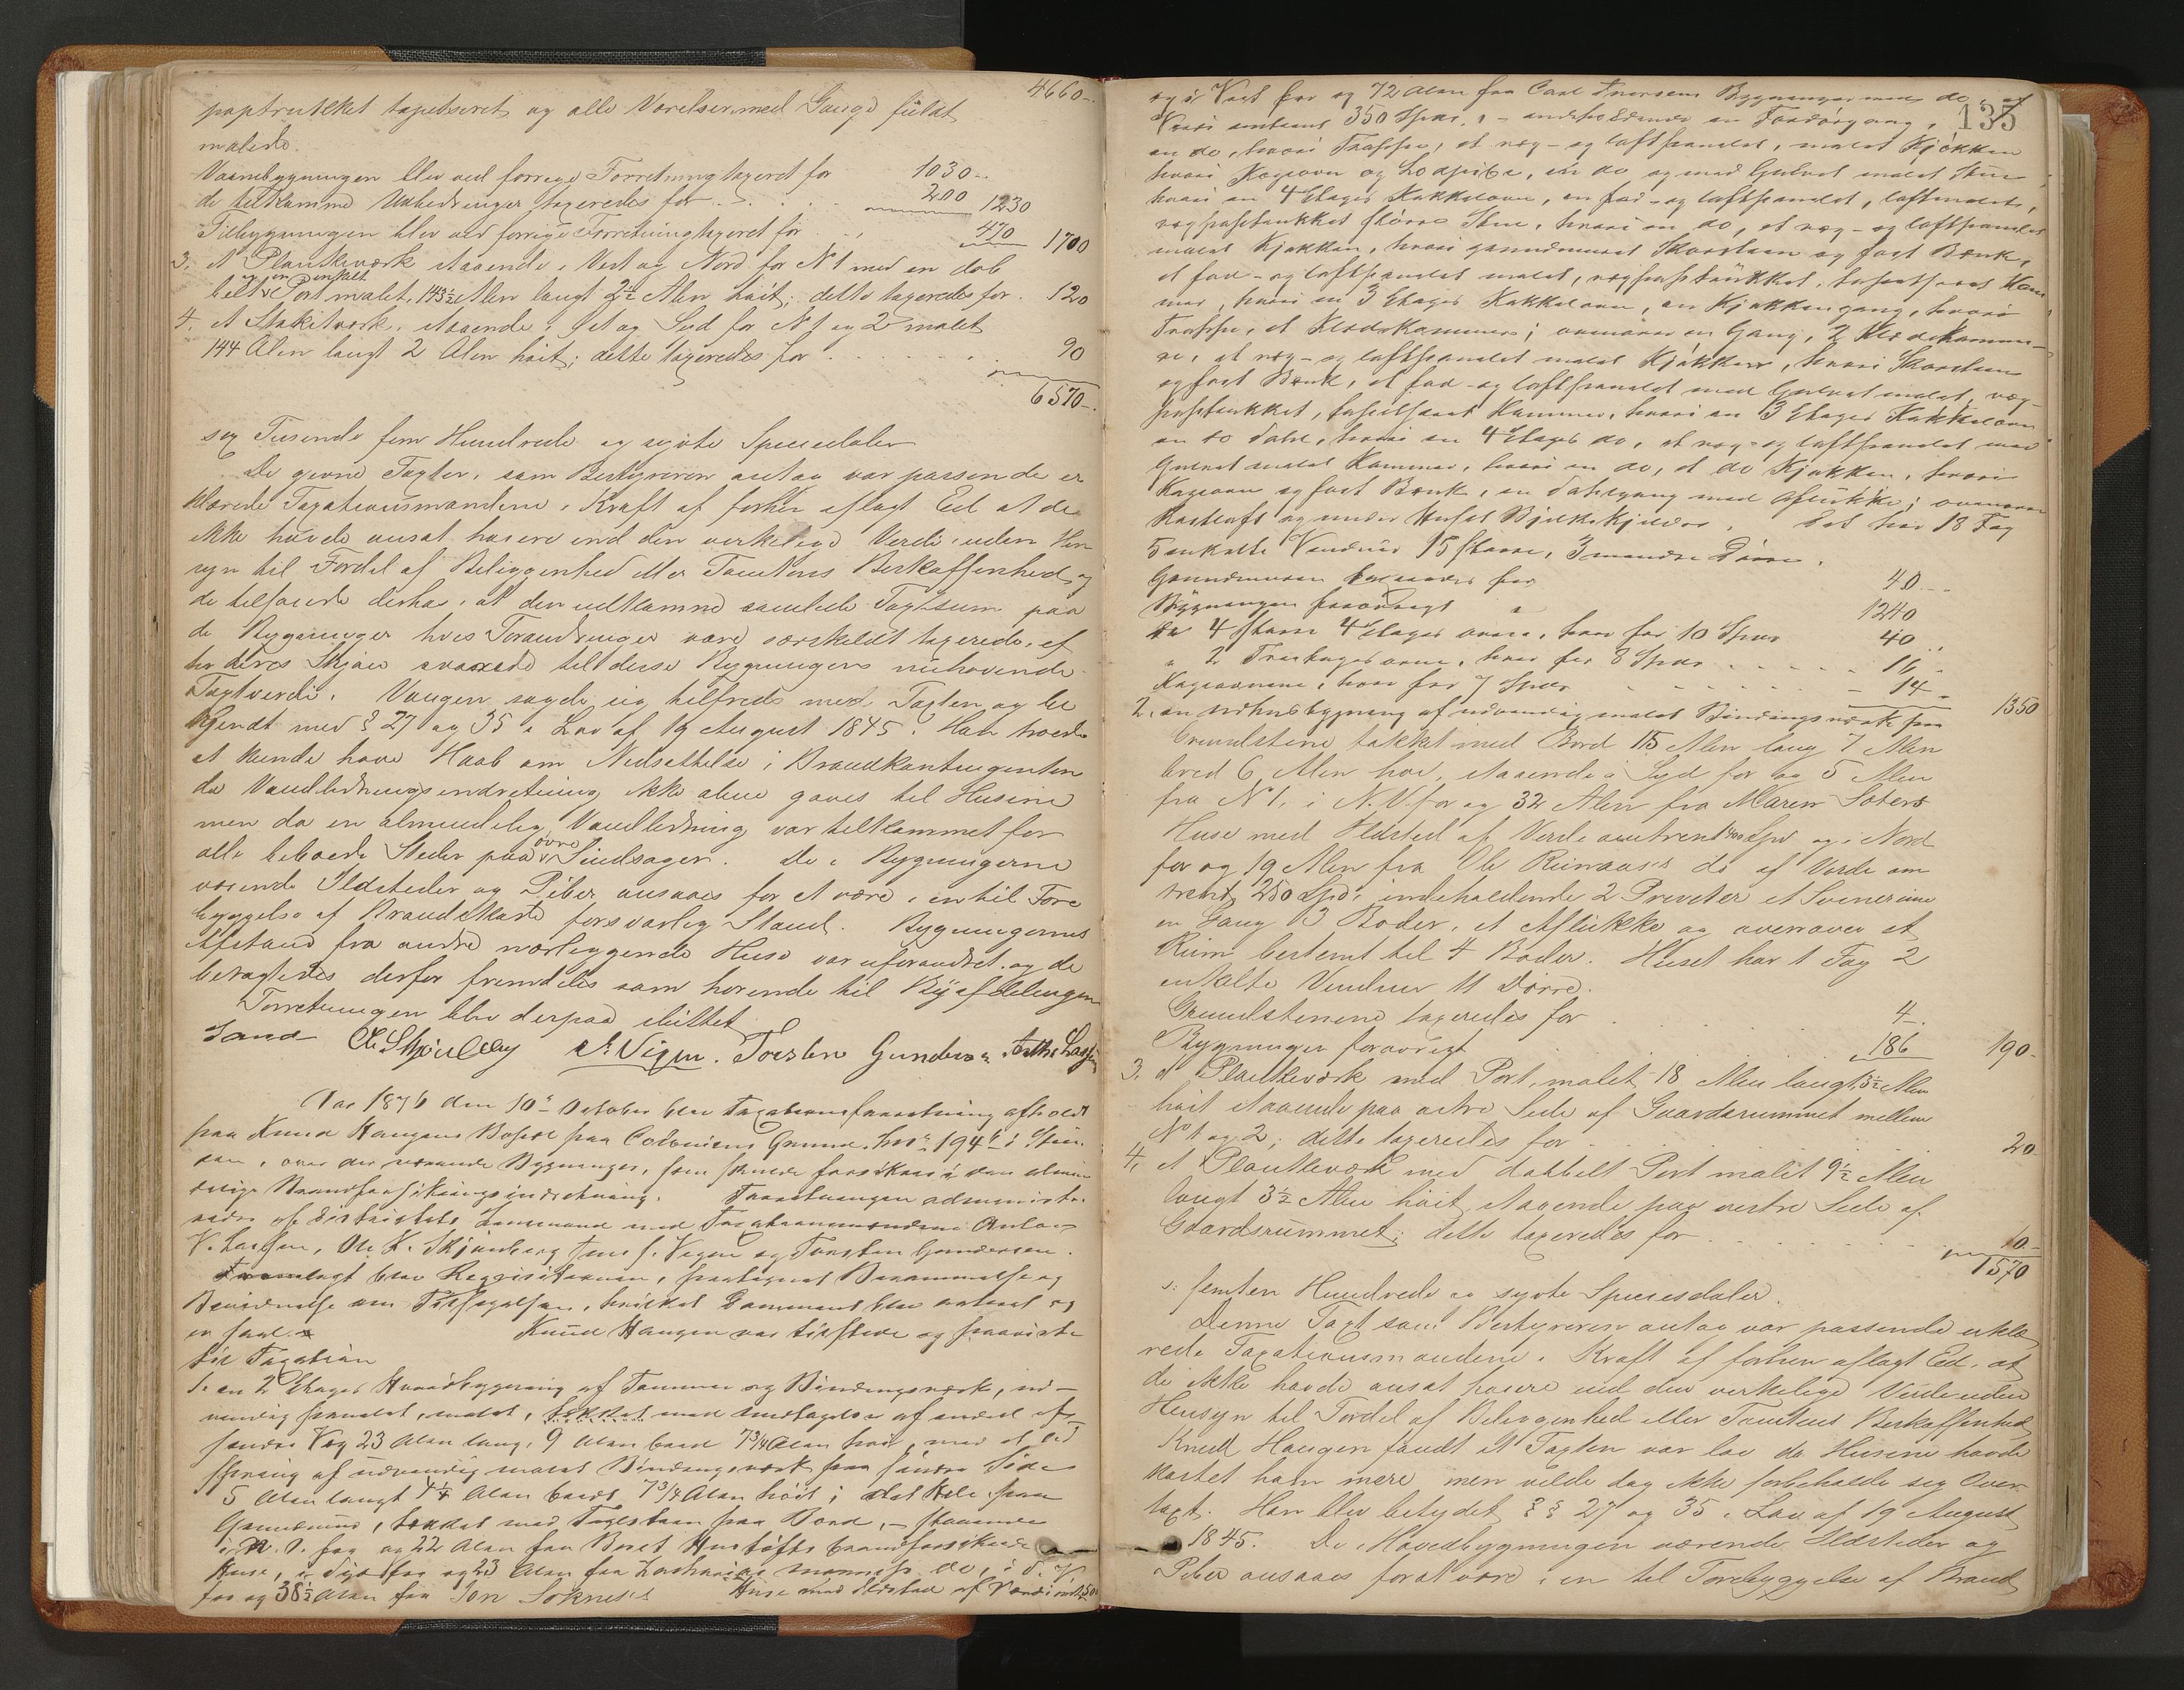 4660..
paptrukket tapetseret og alle Værelser med Gange fuldt
malede.
Vaambygningen blev ved forrige Forretning taxeret for 1030..
de tilkomme Udbedringer taxeredes for 200 1230
Tilbygningen blev ved forrige Forretning taxeret for 470 1700
3. et Plankeværk staaende i Vest og Nord for N 1 med en dob
belt og en enkelt Port malet, 143½ Alen langt 2½ Alen høit; dette taxeredes for. 120
4. et Stakitværk, staaende i Øst og Syd for N 1 og 2 malet
144 Alen langt 2 Alen høit; dette taxeredes for 90
6570..
sex Tusende fem Hundrede og sytti Speciedaler
De givne Taxter, som Bestyreren antog var passende er
klærede Taxationsmændene i Kraft af forhen aflagt Eed at de
ikke havde ansat høiere end den virkelige Værdi uden Hen
syn til Fordel af Beliggenhed eller Tomtens Beskaffenhed og
de tilføiede derhos, at den udkomne samlede Taxtsum paa
de Bygninger hvis Forandringer vare særskildt taxerede, ef
ter deres Skjøn svarede til disse Bygningers nuhavende
Taxtverdi. Vaugen sagde sig tilfreds med Taxten og be
kjendt med § 27 og 35 i Lov af 19 August 1845. Han troede
at kunde have Haab om Nedsættelse i Brandkontingenten
da Vandledningsindretning ikke alene gaves til Husene
men da en almindelig Vandledning var tilkommet for
alle beboede Steder paa øvre Sindsager. De i Bygningerne
værende Ildsteder og Piber ansaaes for at være i en til Fore
byggelse af Brandskade forsvarlig Stand. Bygningernes
Afstand fra andre nærliggende Huse var uforandret og de
betragtedes derfor fremdeles som hørende til Byafdelingen
Forretningen blev derpaa sluttet
Sand O. K. Skjønberg J. Vigen. Torsten Gundersen. Anton Lassen
Aar 1876 den 10de October blev Taxationsforretning afholdt
paa Knud Haugens Bopæl paa Coloniens Grund
over der værende Bygninger, som skulde forsikres i den almin
delige Brandforsikringsindretning. Forretningen administre
redes af Distriktets Lensmand med Taxationsmændene Anton
V. Lassen, Ole K. Skjønberg, Jens J. Vigen og Torsten Gundersen.
Fremlagt blev Reqvisitionen, paategnet Berammelse og
Beskikkelse om Tilsigelsen, hvilket Document blev oplæst og
Knud Haugen var tilstede og fremviste
til Taxation
1. en 2 Etages Hovedbygning af Tømmer og Bindingsværk, ud-
vendig panelet, malet, med Undtagelse af
søndre Væg 23 Alen lang, 9 Alen bred 7¾ Alen høi, med et Ud
spring af udvendig malet Bindingsværk paa søndre Side
5 Alen langt 4¼ Alen bredt, 7¾ Alen høit; det Hele paa
Grundmur, tækket med Taglsteen paa Bord, staaende
i N. V. for og 22 Alen fra brandforsikrede
Huse, i Syd for og 23 Alen fra
for og 38½ Alen fra Jon Søknes's Huse med Ildsted af Værdi
135
og i Vest for og 72 Alen fra Carl Iversens Bygninger med do af
Værdi omtrent 350 Spd., indeholdende en Fordørgang,
en do, hvori Trappe, et væg- og loftpanelet, malet Kjøkken
hvori Kogeovn og en do og med Gulvet malet Stue
hvori en 4 Etages Kakkelovn, en fod- og loftpanelet, loftmalet,
vægpaptrukket større Stue, hvori en do, et væg- og loftpanelet
malet Kjøkken, hvori grundmuret Skorsteen og fast Bænk,
et fod- og loftpanelet malet, vægpaptrukket, tapetseret Kam
mer, hvori en 3 Etages Kakkelovn, en Kjøkkengang, hvori
Trappe, et Klædekammer; ovenover en Gang, 2 Klædekamme-
re, et væg- og loftpanelet malet Kjøkken, hvori Skorsteen
og fast Bænk, et fod- og loftpanelet med Gulvet malet, væg-
paptrukket, tapetseret Kammer, hvori en 3 Etages Kakkelovn
en do Sahl, hvori en 4 Etages do, et væg- og loftpanelet med
Gulvet malet Kammer, hvori en do, et do Kjøkken, hvori
Kogeovn og fast Bænk, en Sahlsgang med Aflukke; ovenover
Røstloft og under Huset Bjelkekjelder. Det har 13 Fag
5 enkelte Vinduer 15 større, 3 mindre Dørre.
Grundmuren taxeredes for 40..
Bygningen forøvrigt 1240
de 4 større 4 Etages ovne, hver for 10 Spd 40..
" 2 Treetagesovne, hver for 8 Spd 16..
Kogeovnene, hver for 7 Spd 14..
1350
2. en Udhusbygning af udvendig malet Bindingsværk paa
Grundstene tækket med Bord 15 Alen lang 7 Alen
bred 6 Alen høi, staaende i Syd for og 5 Alen
fra N 1, i N. V. for og 32 Alen fra Maren Soters
Huse med Ildsted af Verdi omtrent 400 Spd og i Nord
for og 19 Alen fra Ole Ruiraas's do af Verdi om
trent 250 Spd; indeholdende 2 Priveter et Svinerum
en Gang 3 Boder, et Aflukke og ovenover et
Rum bestemt til 4 Boder. Huset har 1 Fag 2
enkelte Vinduer 11 Dørre.
Grundstenene taxeredes for 4.
Bygningen forøvrigt 186 190.
3. et Plankeværk med Port, malet 18 Alen langt, 3½ Alen
høit staaende paa østre Side af Gaardsrummet mellem
N 1 og 2; dette taxeredes for 20
4. et Plankeværk med dobbelt Port malet 9½ Alen
langt 3½ Alen høit, staaende paa vestre Side af
Gaardsrummet; dette taxeredes for 10.
1570
s. femten Hundrede og sytti Speciesdaler.
Denne Taxt som Bestyreren antog var passende erklæ
rede Taxationsmændene i Kraft af forhen aflagt Eed, at
de ikke havde ansat høiere end den virkelige Verdi uden
Hensyn til Fordel af Beliggenhed eller Tomtens Beskaffenhed
Knud Haugen fandt at Taxten var lav da Husene havde
kostet ham mere men vilde dog ikke forbeholde sig Over
taxt. Han blev betydet §§ 27 og 35 i Lov af 19 August
1845. De i Hovedbygningen værende Ildsteder og
Piber ansaaes for at være i en til Forebyggelse af Brand